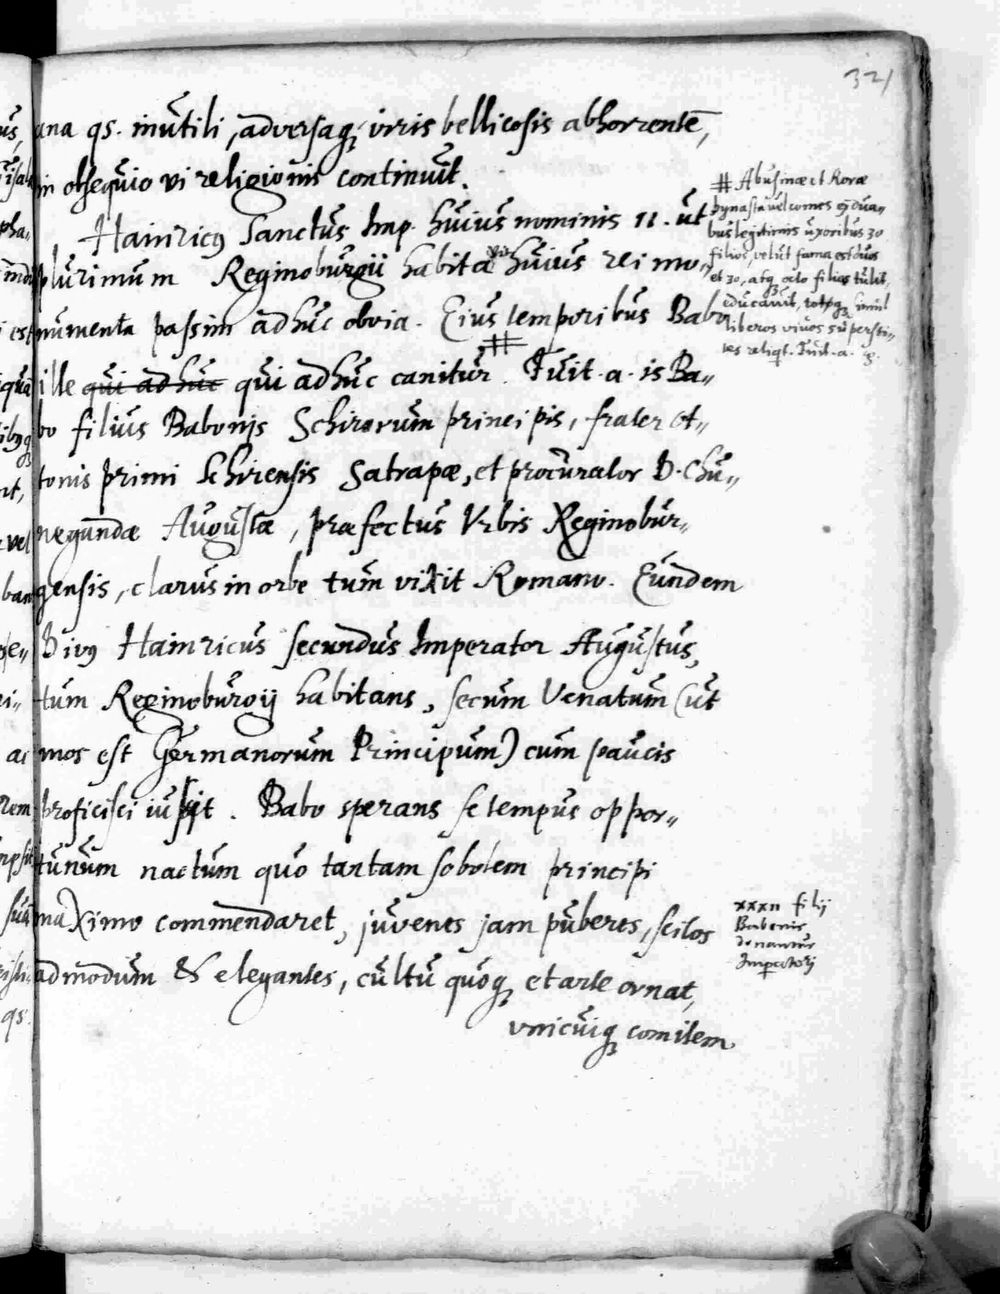 321
una qs. inutili, adversaq; viris bellicosis abhorrente,
in obsequio vi religionis continuit.
Hainricus Sanctus Imp. huius nominis II. ut
plurimum Reginoburgii habitavit huius rei mo„
numenta passim adhuc obvia. Eius temporibus Babo
ille qui adhuc qui adhuc canitur. Fuit a. is Ba„
bo filius Babonis Schirorum principis, frater Ot„
tonis primi Schirensis Satrapæ, et procurator D. Chu„
negundæ Augustæ, præfectus Urbis Reginobur„
gensis, clarus in orbe tum vixit Romano. Eundem
Divus Hainricus secundus Imperator Augustus,
tum Reginoburgij habitans, secum Venatum (ut
mos est Germanorum Principum) cum paucis
proficisci iussit. Babo sperans se tempus oppor„
tunum nactum quo tantam sobolem principi
maximo commendaret, juvenes jam puberes, scilos
admodum & elegantes, cultu quoq; et arte ornat,
unicuiq; comitem
# Abusinæ et Roræ
Dynasta vel comes ex dua„
bus legitimis uxoribus 30
filios, velut fama est duos
et 30, atq; octo filias tulit,
educavit, totq; simul
liberos vivos supersti„
tes reliqt. Fuit a.
XXXII filij
Babonis
donantur
Imperatori